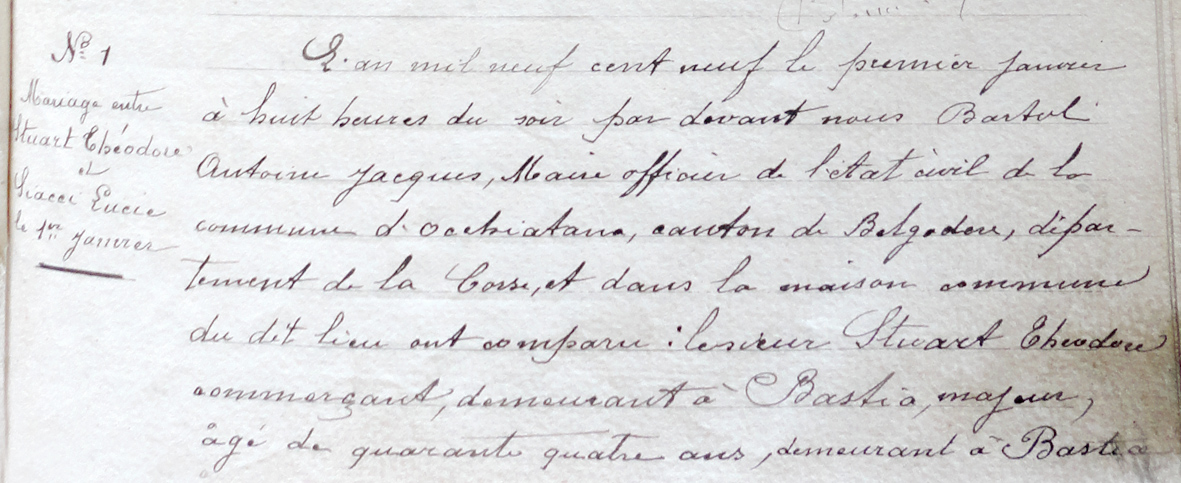 Nº 1
Mariage entre
Stuart Théodore
et
Siacci Lucie
le 1er janvier
L'an mil neuf cent neuf le premier janvier
à huit heures du soir par devant nous Bartoli
Antoine Jacques, Maire officier de l'état civil de la
commune d'Occhiatana, canton de Belgodere, dépar-
tement de la Corse, et dans la maison commune
du dit lieu ont comparu : le sieur Stuart Théodore
commerçant, demeurant à Bastia, majeur,
âgé de quarante quatre ans, demeurant à Bastia